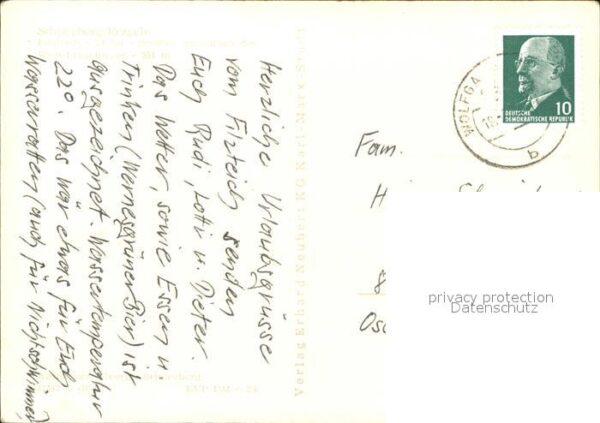 Herzliche Urlaubsgrüsse
vom Filzteich senden
Euch Rudi, Lotti u. Dieter.
Das Wetter, sowie Essen u
Trinken (Wernesgrüner Bier) ist
ausgezeichnet. Wassertemperatur
22°. Das wär etwas für Euch
Wasserratten (auch für Nichtschwimmer)
Verlag Erhard Neubert KG Karl-Marx-Stadt
WOLFGA
b
DEUTSCHE
DEMOKRATISCHE REPUBLIK
10
Fam.
privacy protection
Datenschutz